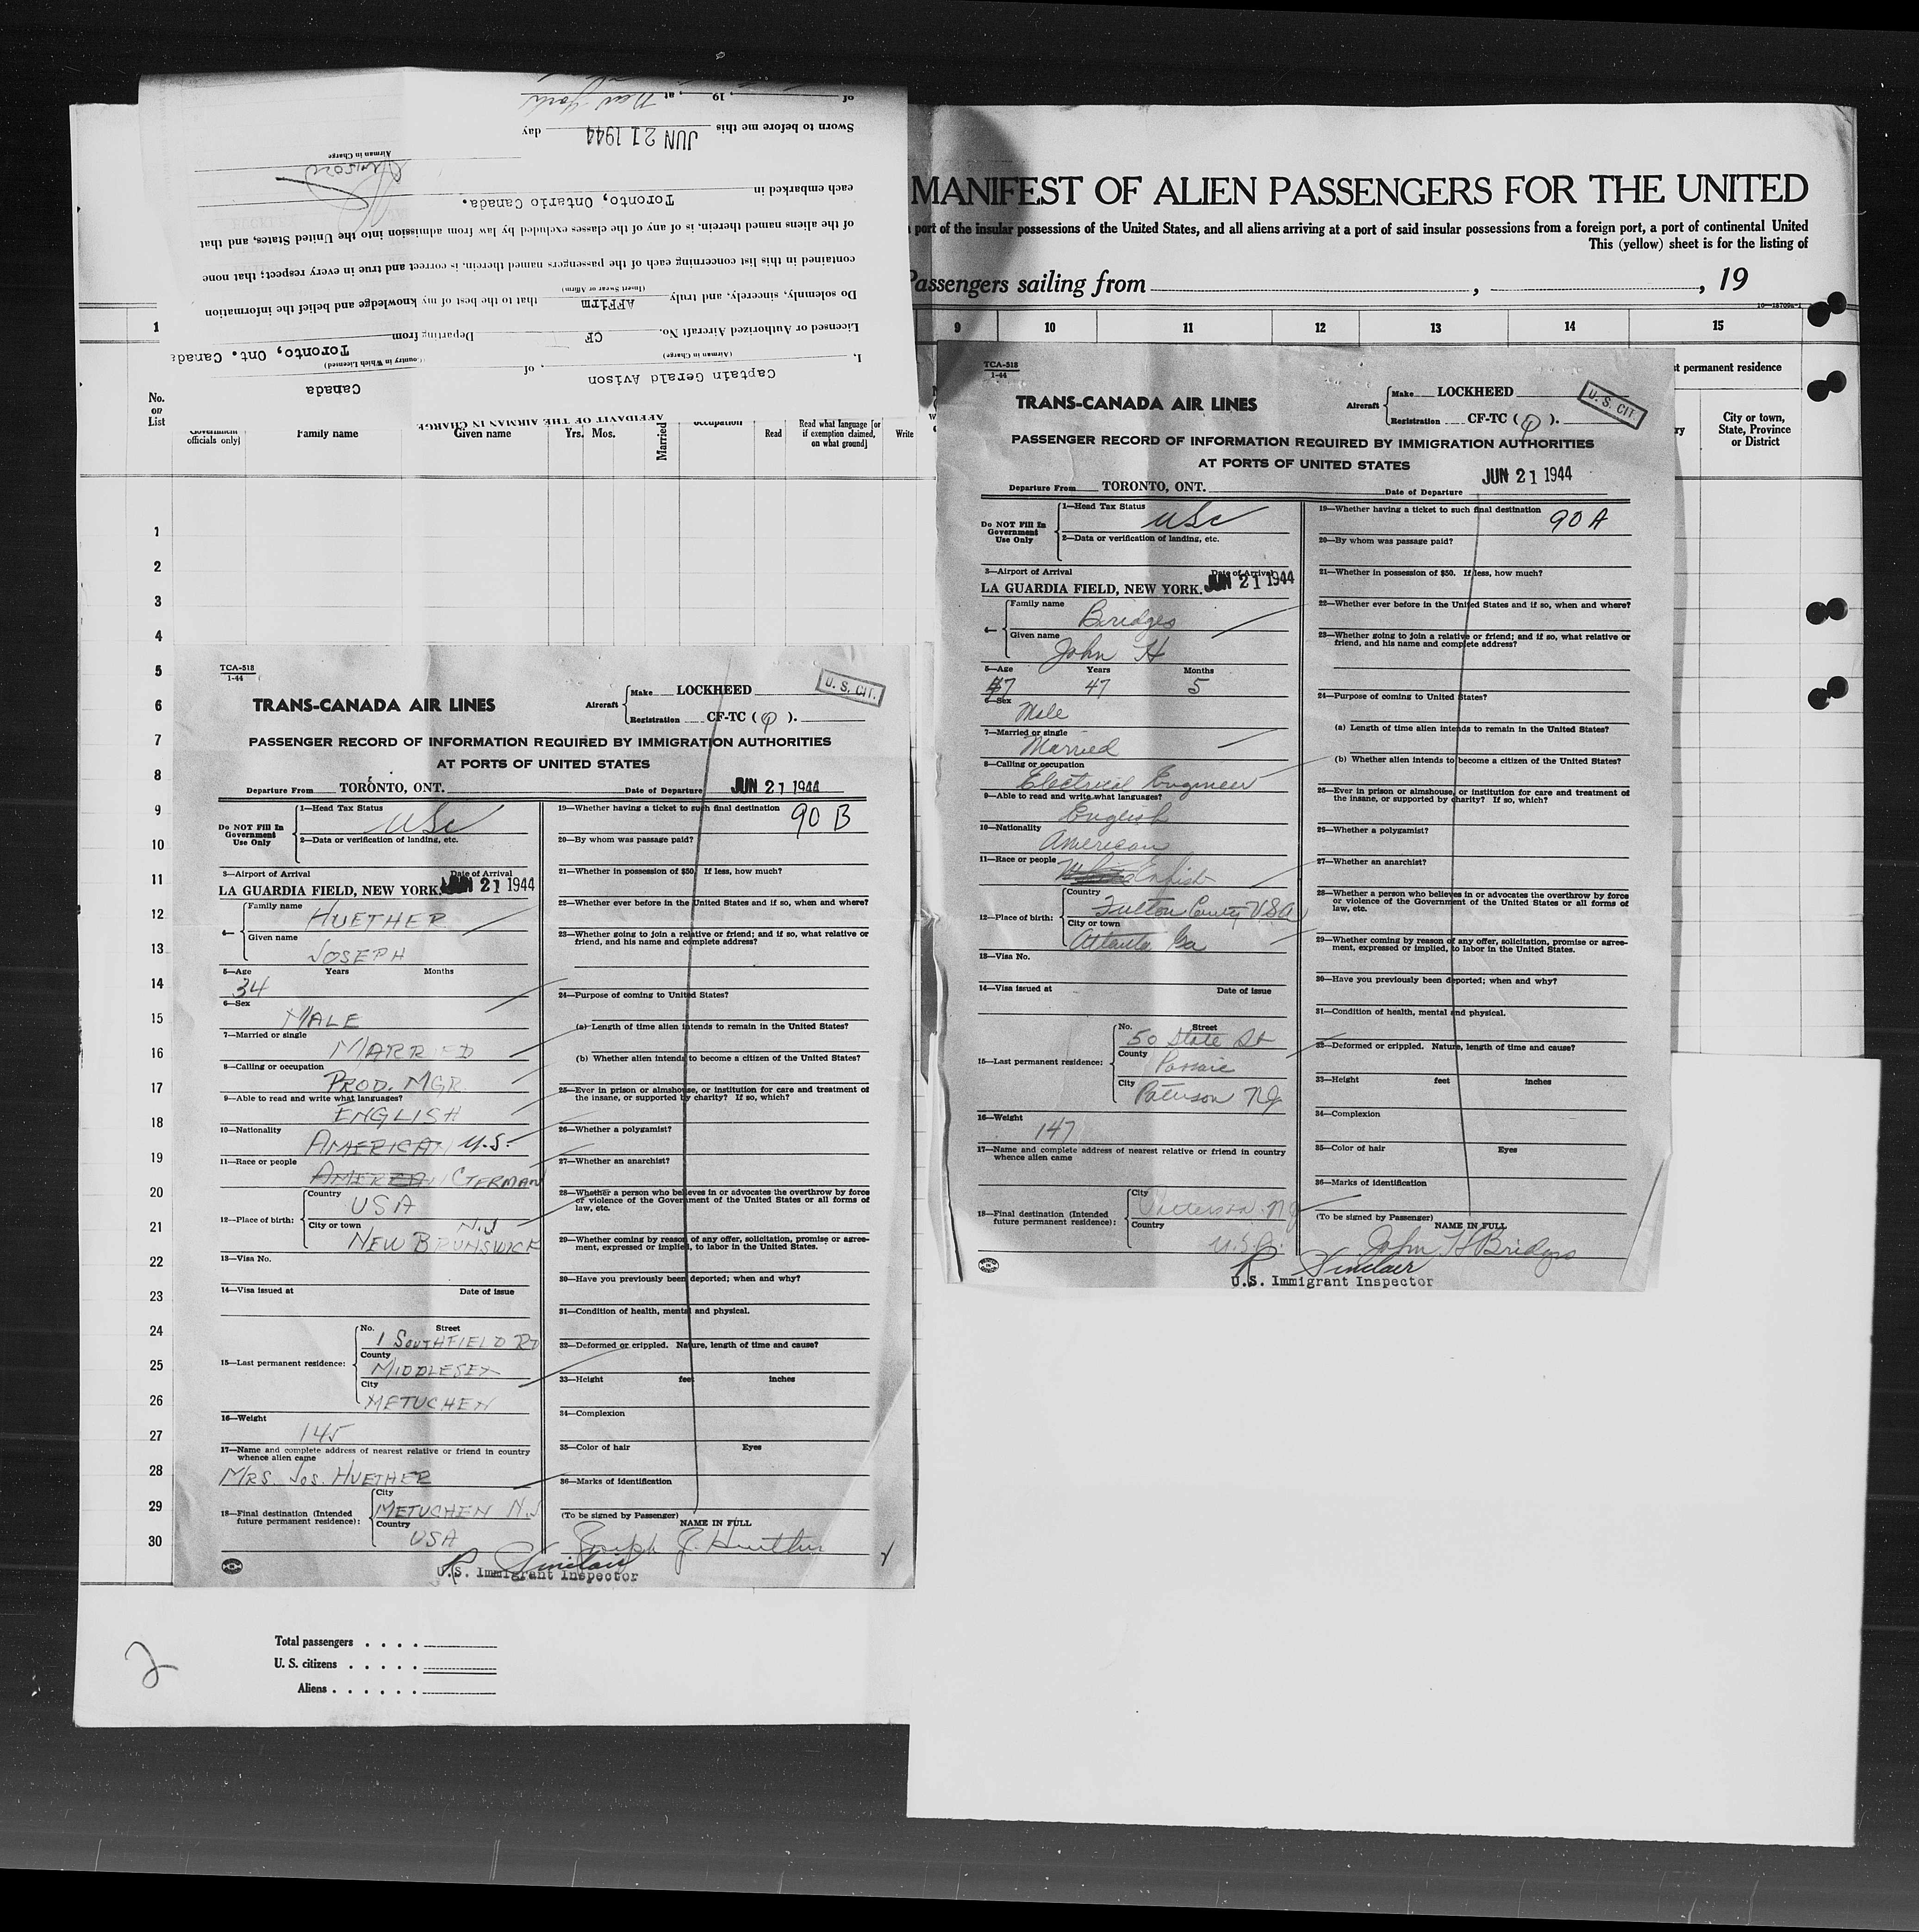 of ______, 19__, at New York
Sworn to before me this JUN 21 1944 day
Airman in Charge
each embarked in Toronto, Ontario Canada.
of the aliens named therein, is of any of the classes excluded by law from admission into the United States, and that
contained in this list concerning each of the passengers named therein, is correct and true in every respect; that none
(Insert Swear or Affirm)
Do solemnly, sincerely, and truly Affirm that to the best of my knowledge and belief the information
Licensed or Authorized Aircraft No. CF Departing from Toronto, Ont. Canada
(Airman in Charge) (Country in Which Licensed)
I, Captain Gerald Avison, of Canada
AFFIDAVIT OF THE AIRMAN IN CHARGE
MANIFEST OF ALIEN PASSENGERS FOR THE UNITED
port of the insular possessions of the United States, and all aliens arriving at a port of said insular possessions from a foreign port, a port of continental United
This (yellow) sheet is for the listing of
Passengers sailing from , , 19
1 9 10 11 12 13 14 15
No. on List
officials only)
Family name
Given name
Yrs. Mos.
Married
Read
Read what language [or if exemption claimed, on what ground]
Write
t permanent residence
City or town, State, Province or District
1
2
3
4
5
6
7
8
9
10
11
12
13
14
15
16
17
18
19
20
21
22
23
24
25
26
27
28
29
30
TCA-518
1-44
TRANS-CANADA AIR LINES
Aircraft Make LOCKHEED
Registration CF-TC (Q).
U. S. CIT.
PASSENGER RECORD OF INFORMATION REQUIRED BY IMMIGRATION AUTHORITIES
AT PORTS OF UNITED STATES
Departure From TORONTO, ONT. Date of Departure JUN 21 1944
Do NOT Fill In Government Use Only
1—Head Tax Status USc
2—Data or verification of landing, etc.
3—Airport of Arrival Date of Arrival
LA GUARDIA FIELD, NEW YORK. JUN 21 1944
4— Family name HUETHER
Given name JOSEPH
5—Age Years Months
34
6—Sex MALE
7—Married or single MARRIED
8—Calling or occupation PROD. MGR.
9—Able to read and write what languages? ENGLISH
10—Nationality AMERICAN U.S.
11—Race or people AMERICAN GERMAN
12—Place of birth: Country USA
City or town NEW BRUNSWICK N.J
13—Visa No.
14—Visa issued at Date of issue
15—Last permanent residence: No. Street 1 SOUTHFIELD RD
County MIDDLESEX
City METUCHEN
16—Weight 145
17—Name and complete address of nearest relative or friend in country whence alien came
MRS. JOS. HUETHER
18—Final destination (Intended future permanent residence): City METUCHEN N.J
Country USA
19—Whether having a ticket to such final destination 90 B
20—By whom was passage paid?
21—Whether in possession of $50. If less, how much?
22—Whether ever before in the United States and if so, when and where?
23—Whether going to join a relative or friend; and if so, what relative or friend, and his name and complete address?
24—Purpose of coming to United States?
(a) Length of time alien intends to remain in the United States?
(b) Whether alien intends to become a citizen of the United States?
25—Ever in prison or almshouse, or institution for care and treatment of the insane, or supported by charity? If so, which?
26—Whether a polygamist?
27—Whether an anarchist?
28—Whether a person who believes in or advocates the overthrow by force or violence of the Government of the United States or all forms of law, etc.
29—Whether coming by reason of any offer, solicitation, promise or agreement, expressed or implied, to labor in the United States.
30—Have you previously been deported; when and why?
31—Condition of health, mental and physical.
32—Deformed or crippled. Nature, length of time and cause?
33—Height feet inches
34—Complexion
35—Color of hair Eyes
36—Marks of identification
(To be signed by Passenger) NAME IN FULL
Joseph J. Huether
R Sinclair
U.S. Immigrant Inspector
TCA-518
1-44
TRANS-CANADA AIR LINES
Aircraft Make LOCKHEED
Registration CF-TC (Q).
U. S. CIT.
PASSENGER RECORD OF INFORMATION REQUIRED BY IMMIGRATION AUTHORITIES
AT PORTS OF UNITED STATES
Departure From TORONTO, ONT. Date of Departure JUN 21 1944
Do NOT Fill In Government Use Only
1—Head Tax Status USc
2—Data or verification of landing, etc.
3—Airport of Arrival Date of Arrival
LA GUARDIA FIELD, NEW YORK. JUN 21 1944
4— Family name Bridges
Given name John H
5—Age Years Months
47 47 5
6—Sex Male
7—Married or single Married
8—Calling or occupation Electrical Engineer
9—Able to read and write what languages? English
10—Nationality American
11—Race or people White English
12—Place of birth: Country Fulton County USA
City or town Atlanta Ga
13—Visa No.
14—Visa issued at Date of issue
15—Last permanent residence: No. Street 50 State St
County Passaic
City Paterson NJ
16—Weight 147
17—Name and complete address of nearest relative or friend in country whence alien came
18—Final destination (Intended future permanent residence): City Patterson NJ
Country U.S.A.
19—Whether having a ticket to such final destination 90 A
20—By whom was passage paid?
21—Whether in possession of $50. If less, how much?
22—Whether ever before in the United States and if so, when and where?
23—Whether going to join a relative or friend; and if so, what relative or friend, and his name and complete address?
24—Purpose of coming to United States?
(a) Length of time alien intends to remain in the United States?
(b) Whether alien intends to become a citizen of the United States?
25—Ever in prison or almshouse, or institution for care and treatment of the insane, or supported by charity? If so, which?
26—Whether a polygamist?
27—Whether an anarchist?
28—Whether a person who believes in or advocates the overthrow by force or violence of the Government of the United States or all forms of law, etc.
29—Whether coming by reason of any offer, solicitation, promise or agreement, expressed or implied, to labor in the United States.
30—Have you previously been deported; when and why?
31—Condition of health, mental and physical.
32—Deformed or crippled. Nature, length of time and cause?
33—Height feet inches
34—Complexion
35—Color of hair Eyes
36—Marks of identification
(To be signed by Passenger) NAME IN FULL
John H Bridges
R Sinclair
U.S. Immigrant Inspector
Total passengers
U. S. citizens
Aliens
2